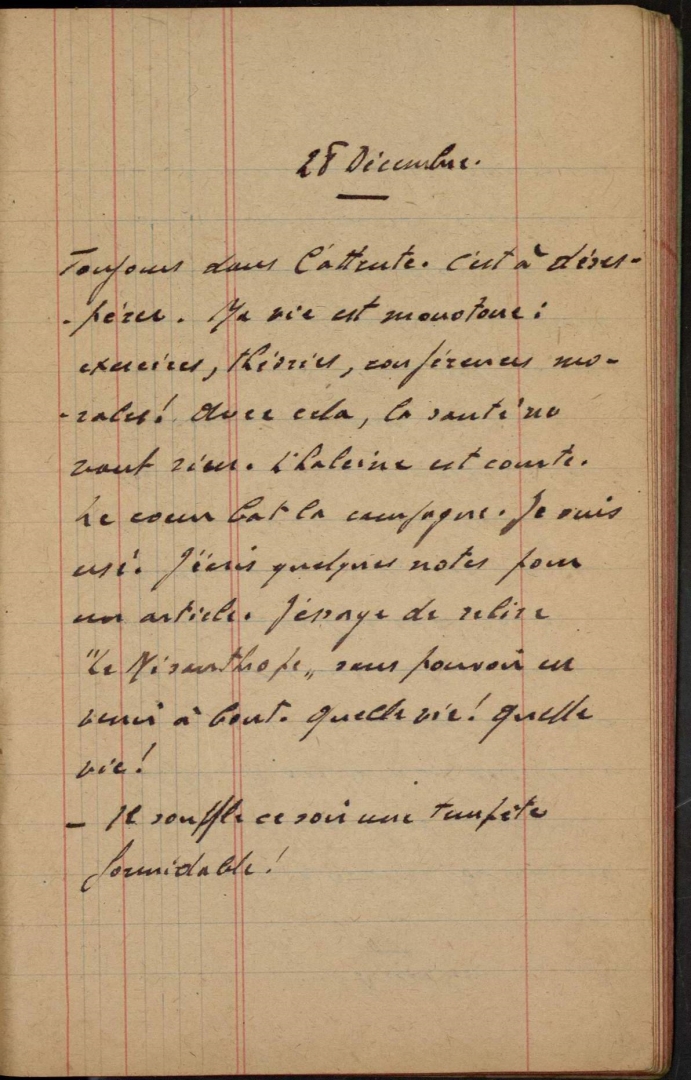 28 Décembre.
Toujours dans l'attente. C'est à déses-
-pérer. Ma vie est monotone :
exercices, théories, conférences mo-
-rales! Avec cela, la santé ne
vaut rien. L'haleine est courte.
Le coeur bat la campagne. Je suis
usé. J'écris quelques notes pour
un article. J'essaye de relire
"Le Misanthrope" sans pouvoir en
venir à bout. Quelle vie! Quelle
vie!
- Il souffle ce soir une tempête
formidable!